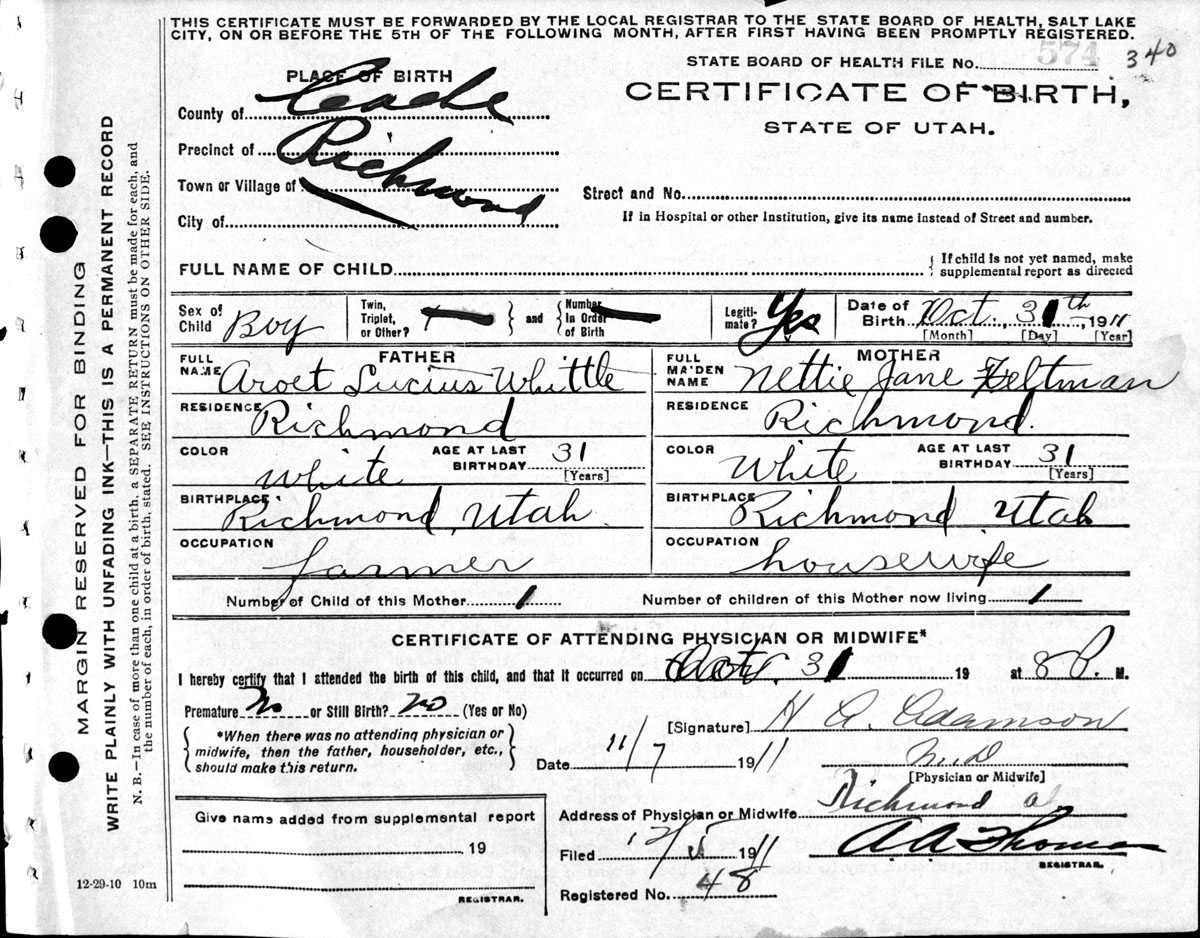 THIS CERTIFICATE MUST BE FORWARDED BY THE LOCAL REGISTRAR TO THE STATE BOARD OF HEALTH, SALT LAKE
CITY, ON OR BEFORE THE 5TH OF THE FOLLOWING MONTH, AFTER FIRST HAVING BEEN PROMPTLY REGISTERED.
STATE BOARD OF HEALTH FILE No. 574 340
PLACE OF BIRTH
CERTIFICATE OF BIRTH,
STATE OF UTAH.
County of Cache
Precinct of Richmond
Town or Village of
Street and No.
City of
If in Hospital or other Institution, give its name instead of Street and number.
FULL NAME OF CHILD
If child is not yet named, make
supplemental report as directed
Sex of Child Boy
Twin, Triplet, or Other?
and
Number in Order of Birth
Legiti-mate? Yes
Date of Birth Oct. 31th, 1911
[Month] [Day] [Year]
FATHER
FULL NAME Aroet Lucius Whittle
RESIDENCE Richmond
COLOR White
AGE AT LAST BIRTHDAY 31
[Years]
BIRTHPLACE Richmond, Utah.
OCCUPATION farmer
MOTHER
FULL MAIDEN NAME Nettie Jane Feltman
RESIDENCE Richmond.
COLOR White
AGE AT LAST BIRTHDAY 31
[Years]
BIRTHPLACE Richmond Utah
OCCUPATION housewife
Number of Child of this Mother 1
Number of children of this Mother now living 1
CERTIFICATE OF ATTENDING PHYSICIAN OR MIDWIFE*
I hereby certify that I attended the birth of this child, and that it occurred on Oct. 31 19 at 8 P. M.
Premature No or Still Birth? No (Yes or No)
*When there was no attending physician or
midwife, then the father, householder, etc.,
should make this return.
[Signature] H A. Adamson
Date 11/7 1911
M D
[Physician or Midwife]
Address of Physician or Midwife Richmond
Filed 1911
A A Thomas
REGISTRAR.
Registered No. 48
Give name added from supplemental report
, 19
REGISTRAR.
12-29-10 10m
MARGIN RESERVED FOR BINDING
WRITE PLAINLY WITH UNFADING INK—THIS IS A PERMANENT RECORD
N. B.—In case of more than one child at a birth, a SEPARATE RETURN must be made for each, and
the number of each, in order of birth, stated. SEE INSTRUCTIONS ON OTHER SIDE.